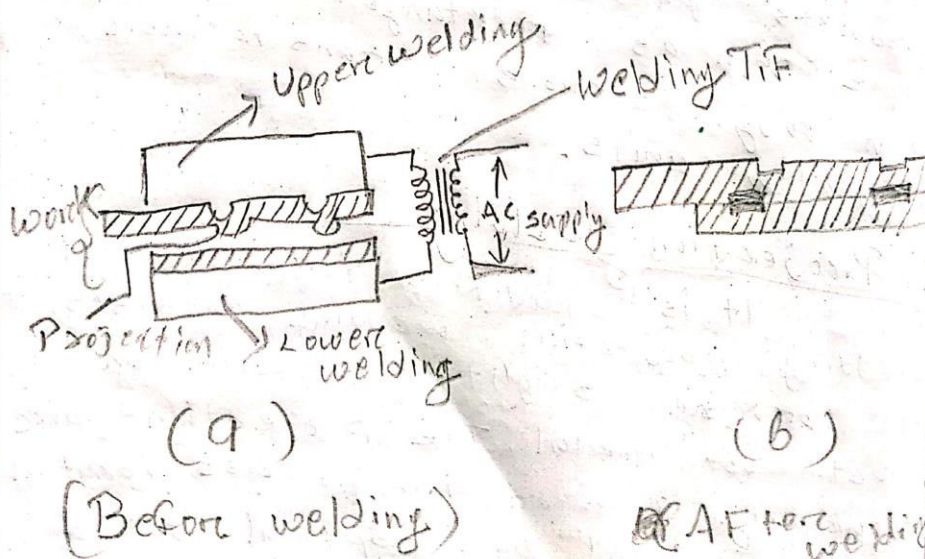 Uppere welding
Welding T.F
Work
AC supply
Projection
Lowere
welding
(a)
(b)
(Before welding)
(AFtere weldin